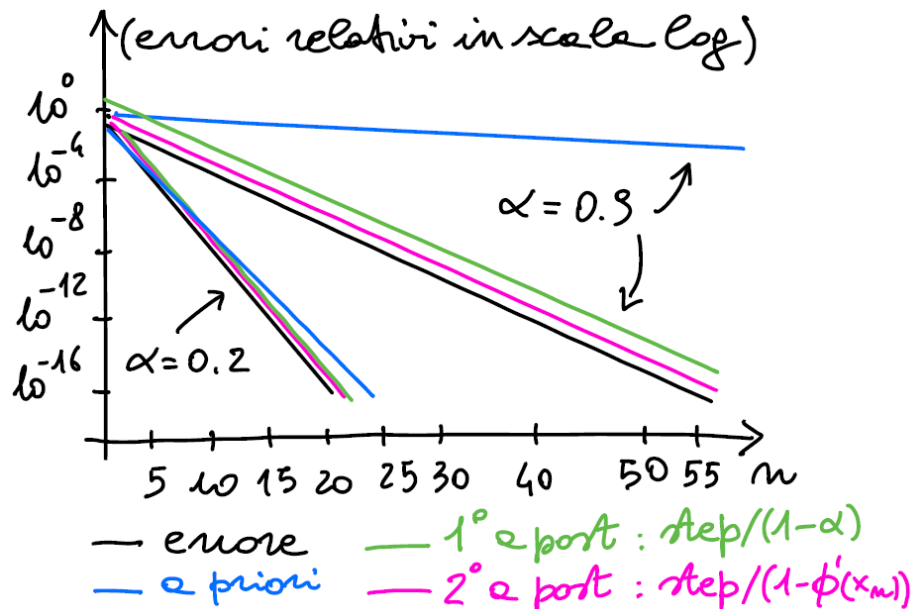 (errori relativi in scala log)
10^0
10^-4
10^-8
10^-12
10^-16
α = 0.9
α = 0.2
5 10 15 20 25 30 40 50 55 n
errore
1° a post : step/(1-α)
a priori
2° a post : step/(1-ϕ'(x_n))